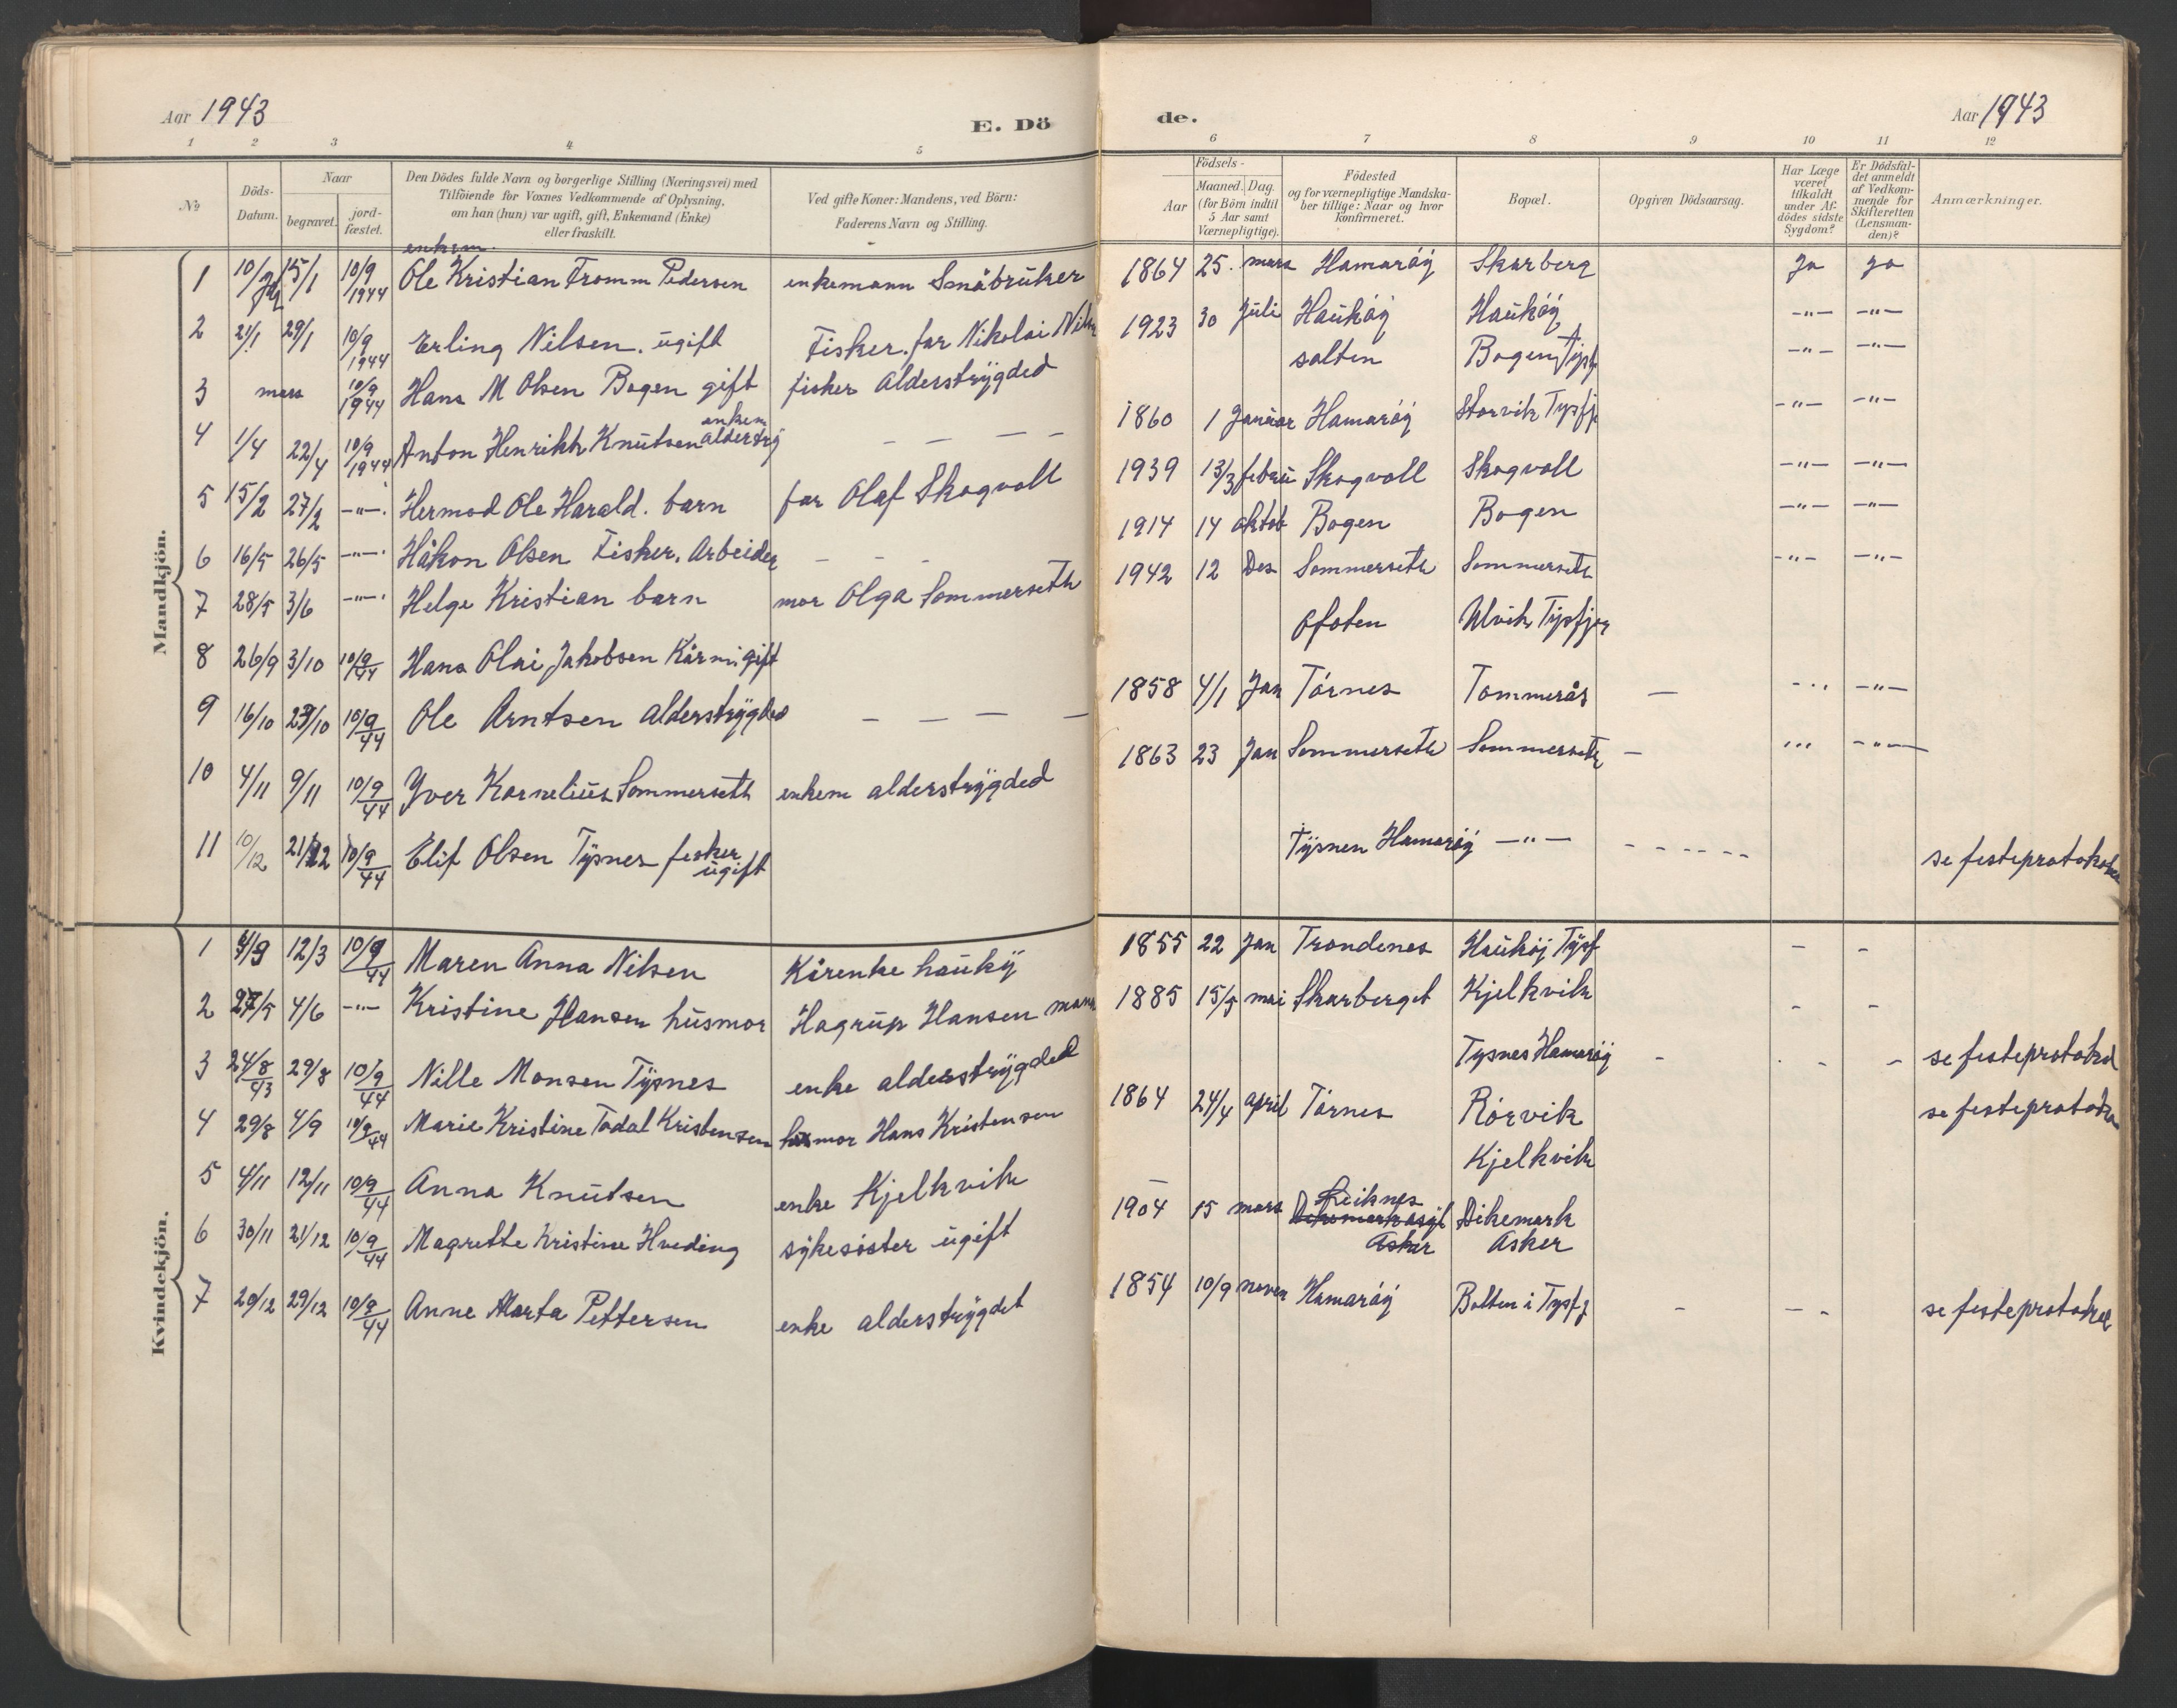 Aar 1943
E. Dö
de.
Aar 1943
1 2 3 4 5 6 7 8 9 10 11 12
№
Döds-Datum.
Naar
begravet.
jord-fæstet.
Den Dödes fulde Navn og borgerlige Stilling (Næringsvei) med
Tilföiende for Voxnes Vedkommende af Oplysning,
om han (hun) var ugift, gift, Enkemand (Enke)
eller fraskilt.
Ved gifte Koner: Mandens, ved Börn:
Faderens Navn og Stilling.
Födsels-
Aar
Maaned. Dag.
(for Börn indtil
5 Aar samt
Værnepligtige).
Födested
og for værnepligtige Mandska-
ber tillige: Naar og hvor
konfirmeret.
Bopæl.
Opgiven Dödsaarsag.
Har Læge
været
tilkaldt
under Af-
dödes sidste
Sygdom?
Er Dödsfal-
det anmeldt
af Vedkom-
mende for
Skifteretten
(Lensman-
den)?
Anmærkninger.
Mandkjön.
enkem.
1 10/ 15/1 10/9 1944 Ole Kristian Fromm Pedersen enkemann Småbruker 1864 25. mars Hamaröy Skarberg Ja Ja
2 21/1 29/1 10/9 1944 Erling Nilsen. ugift Fisker. far Nikolai Nils 1923 30 Juli Hauköy Hauköy -"- -"-
3 mars 10/9 1944 Hans M Olsen Bogen gift fisker alderstrygded salten Bogen Tysf -"- -"-
enkem
4 1/4 22/4 10/9 1944 Anton Henrikk Knutsen alderstry - - - - 1860 1 Januar Hamaröy Storvik Tysfj -"- -"-
5 15/2 27/2 -"-. Hermod Ole Harald. barn far Olaf Skogvoll 1939 13/3 febru Skogvoll Skogvoll -"- -"-
6 16/5 26/5 -"-. Håkon Olsen Fisker. Arbeider - - 1914 14 oktob Bogen Bogen -"- -"-
7 28/5 3/6 -"-. Helge Kristian barn mor Olga Sommerseth 1942 12 Des Sommerseth Sommerseth -"- -"-
8 26/9 3/10 10/9 44 Hans Olai Jakobsen Kårm. gift Ofoten Ulvik Tysfjor
9 16/10 /10 10/9 44 Ole Arntsen alderstrygded - - - - 1858 4/1 Jan Törnes Tommerås - -"-
10 4/11 9/11 10/9 44 Yver Kornelius Sommerseth enkem alderstrygded 1863 23 Jan Sommerseth Sommerseth - -"-
11 10/12 21/12 10/9 44 Elif Olsen Tysnes fisker Tysnen Hamaröy -"- - - - - - - se festeprotokolen
ugift
Kvindekjön.
1 12/3 10/9 44 Maren Anna Nilsen Kårenke hauköy 1855 22 Jan Trondenes Hauköj Tysf - -
2 27/5 4/6 -"- Kristine Hansen husmor Hagrup Hansen mann 1885 15/5 mai Skarberget Kjelkvik - -
3 24/8 43 29/8 10/9 44 Nille Monsen Tysnes enke alderstrygded Tysnes Hamaröy - - - se festeprotokol
4 29/8 4/9 10/9 44 Marie Kristine Todal Kristensen husmor Hans Kristensen 1864 24/4 april Törnes Rörvik se festeprotokol
5 4/11 12/11 10/9 44 Anna Knutsen enke Kjelkvik Kjelkvik
6 30/11 21/12 10/9 44 Magrethe Kristine Hveding sykesöster ugift 1904 15 mars Leiknes Dikemark
Asker Asker
7 20/12 29/12 10/9 44 Anne Marta Pettersen enke alderstrygdet 1854 10/9 noven Hamaröy Bolten i Tysfj - - - se festeprotokol